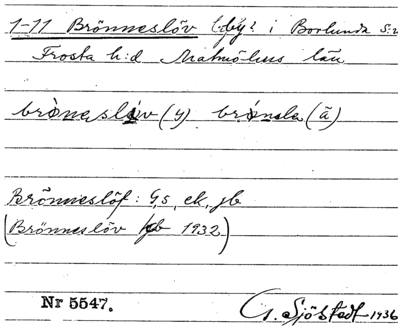 1-11 Brönneslöv (by) i Borlunda s:n
Frosta h:d Malmöhus län
brònaslöv (y) brónsla (ä)
Brönneslöf: GS, ek, jb
(Brönneslöv jb 1932)
Nr 5547.
G. Sjöstedt 1936